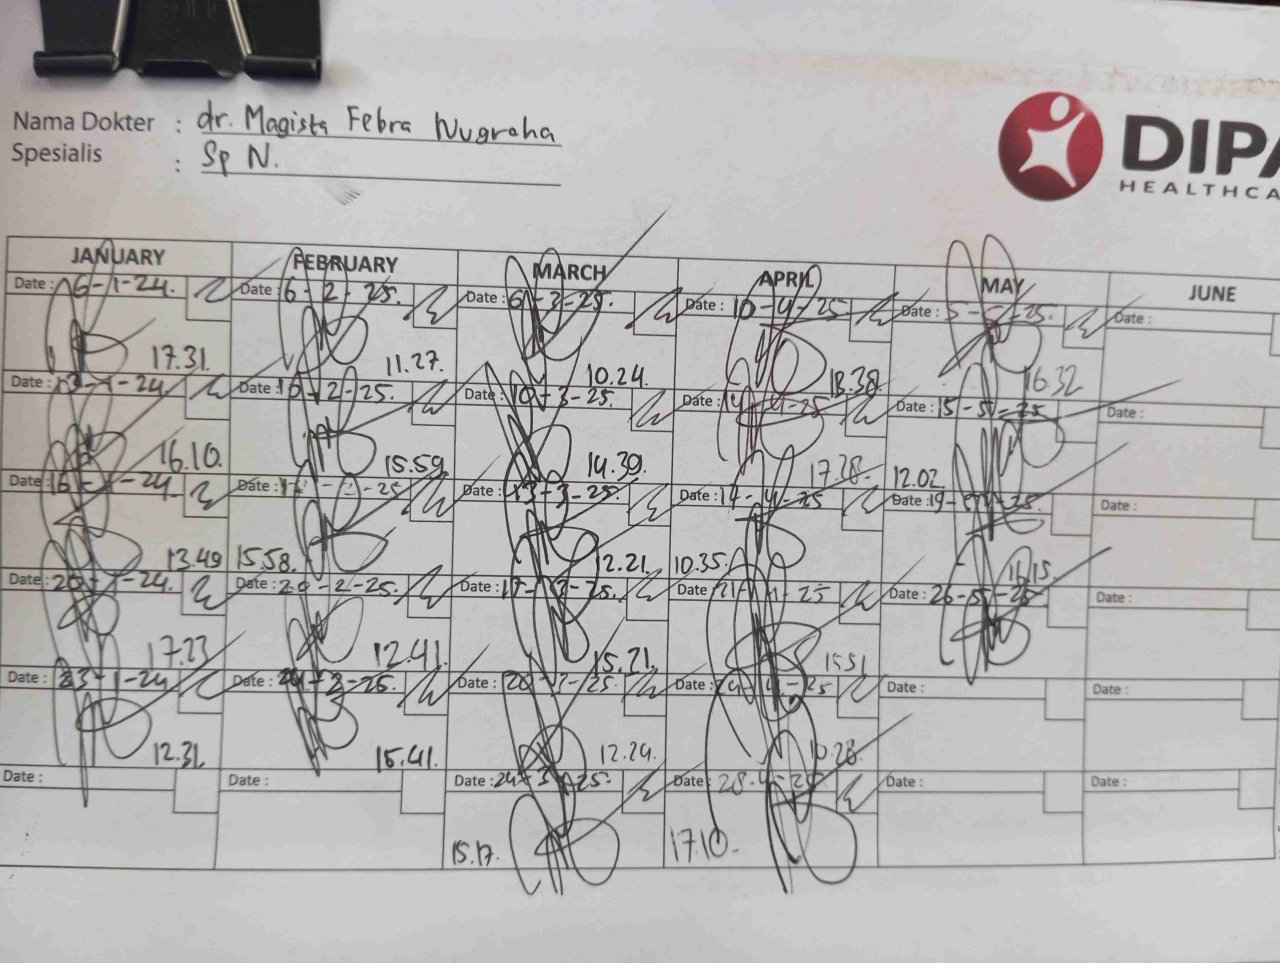 Nama Dokter : dr. Magista Febra Nugraha
Spesialis : Sp N.
DIPA
HEALTHCA
JANUARY FEBRUARY MARCH APRIL MAY JUNE
Date : 6-1-24. Date : 6-2-25. Date : 6-3-25. Date : 10-4-25 Date : 5-5-25. Date :
17.31. 11.27. 10.24. 18.38 16.32
Date : 13-1-24 Date : 10-2-25. Date : 10-3-25. Date : 25 Date : 15-5-25 Date :
16.10. 15.59 14.39. 17.28. 12.02
Date : 16-1-24 Date : 25 Date : 13-3-25. Date : 17-4-25 Date : 19-5-25. Date :
13.49 15.58. 12.21. 10.35. 16.15.
Date : 20-1-24. Date : 20-2-25. Date : 17-3-25. Date : 21-4-25 Date : 26-5-25 Date :
17.23 12.41. 15.21. 15.51
Date : 23-1-24 Date : 24-2-25. Date : 20-3-25. Date : 24-4-25 Date : Date :
12.31. 15.41. 12.24. 10.28
Date : Date : Date : 24-3-25. Date : 28-4-25 Date : Date :
15.17. 17.10.